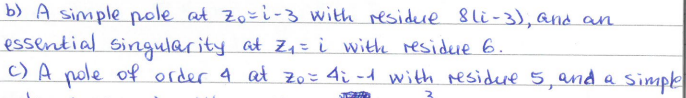 b) A simple pole at z₀=i-3 with residue 8(i-3), and an
essential singularity at z₁=i with residue 6.
c) A pole of order 4 at z₀=4i-1 with residue 5, and a simple